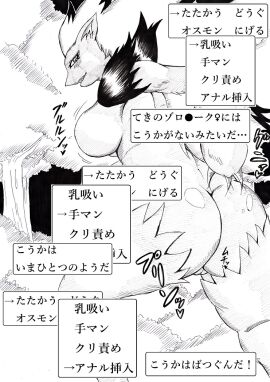 →たたかう どうぐ
オスモン にげる
→乳吸い
手マン
クリ責め
アナル挿入
てきのゾロ●ーク♀には
こうかがないみたいだ…
ブルルンッ♡
→たたかう どうぐ
にげる
乳吸い
→手マン
クリ責め
こうかは
いまひとつのようだ
ムチッ♡
プリンッ
→たたかう どうぐ
オスモン にげる
乳吸い
手マン
クリ責め
→アナル挿入
こうかはばつぐんだ!